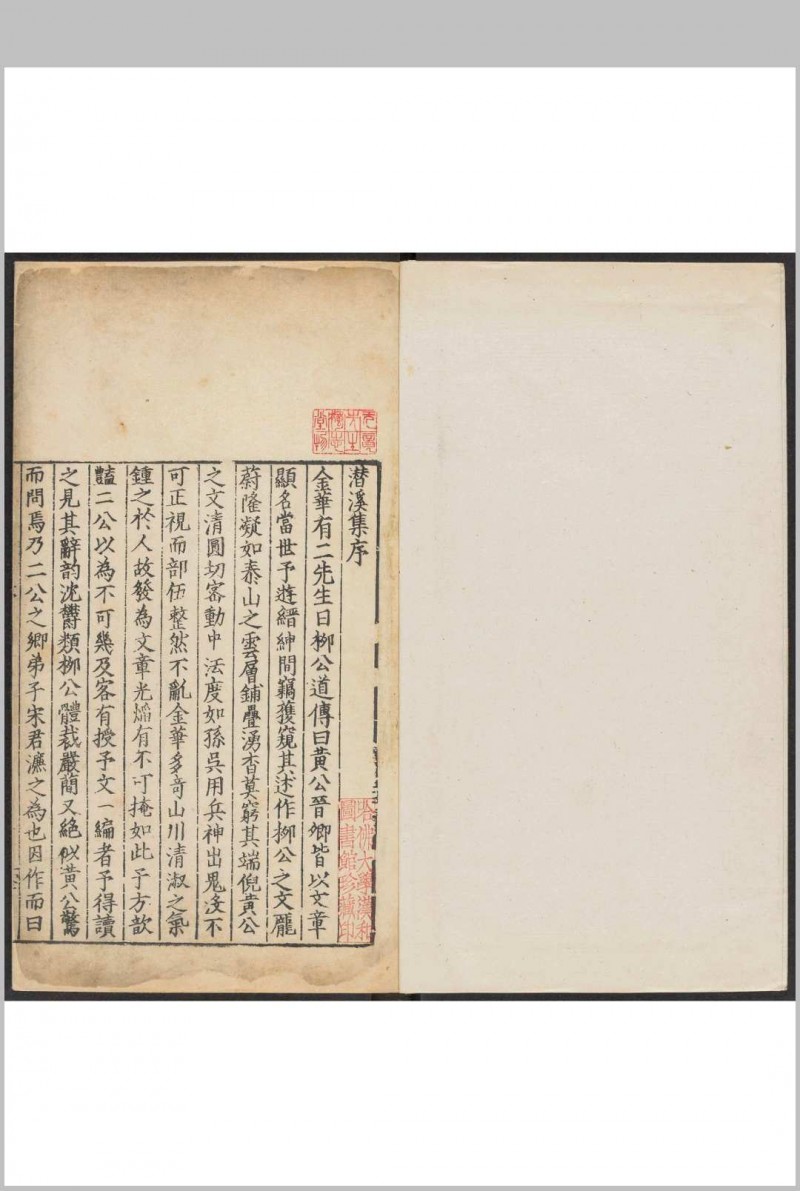 潛溪集序
金華有二先生曰柳公道傳曰黄公晉卿皆以文章
顯名當世予遊縉紳間竊獲窺其述作柳公之文龎
蔚隆凝如泰山之雲層鋪疊湧杳莫窮其端倪黄公
之文清圓切宻動中法度如孫吳用兵神出鬼没不
可正視而部伍整然不亂金華多竒山川清淑之氣
鍾之於人故發為文章光熖有不可掩如此予方歆
豔二公以為不可㡬及客有授予文一編者予得讀
之見其辭韵沈欝類柳公體裁嚴簡又絕似黄公驚
而問焉乃二公之鄉弟子宋君濂之為也因作而曰
哈佛大學漢和
圖書館珍藏印